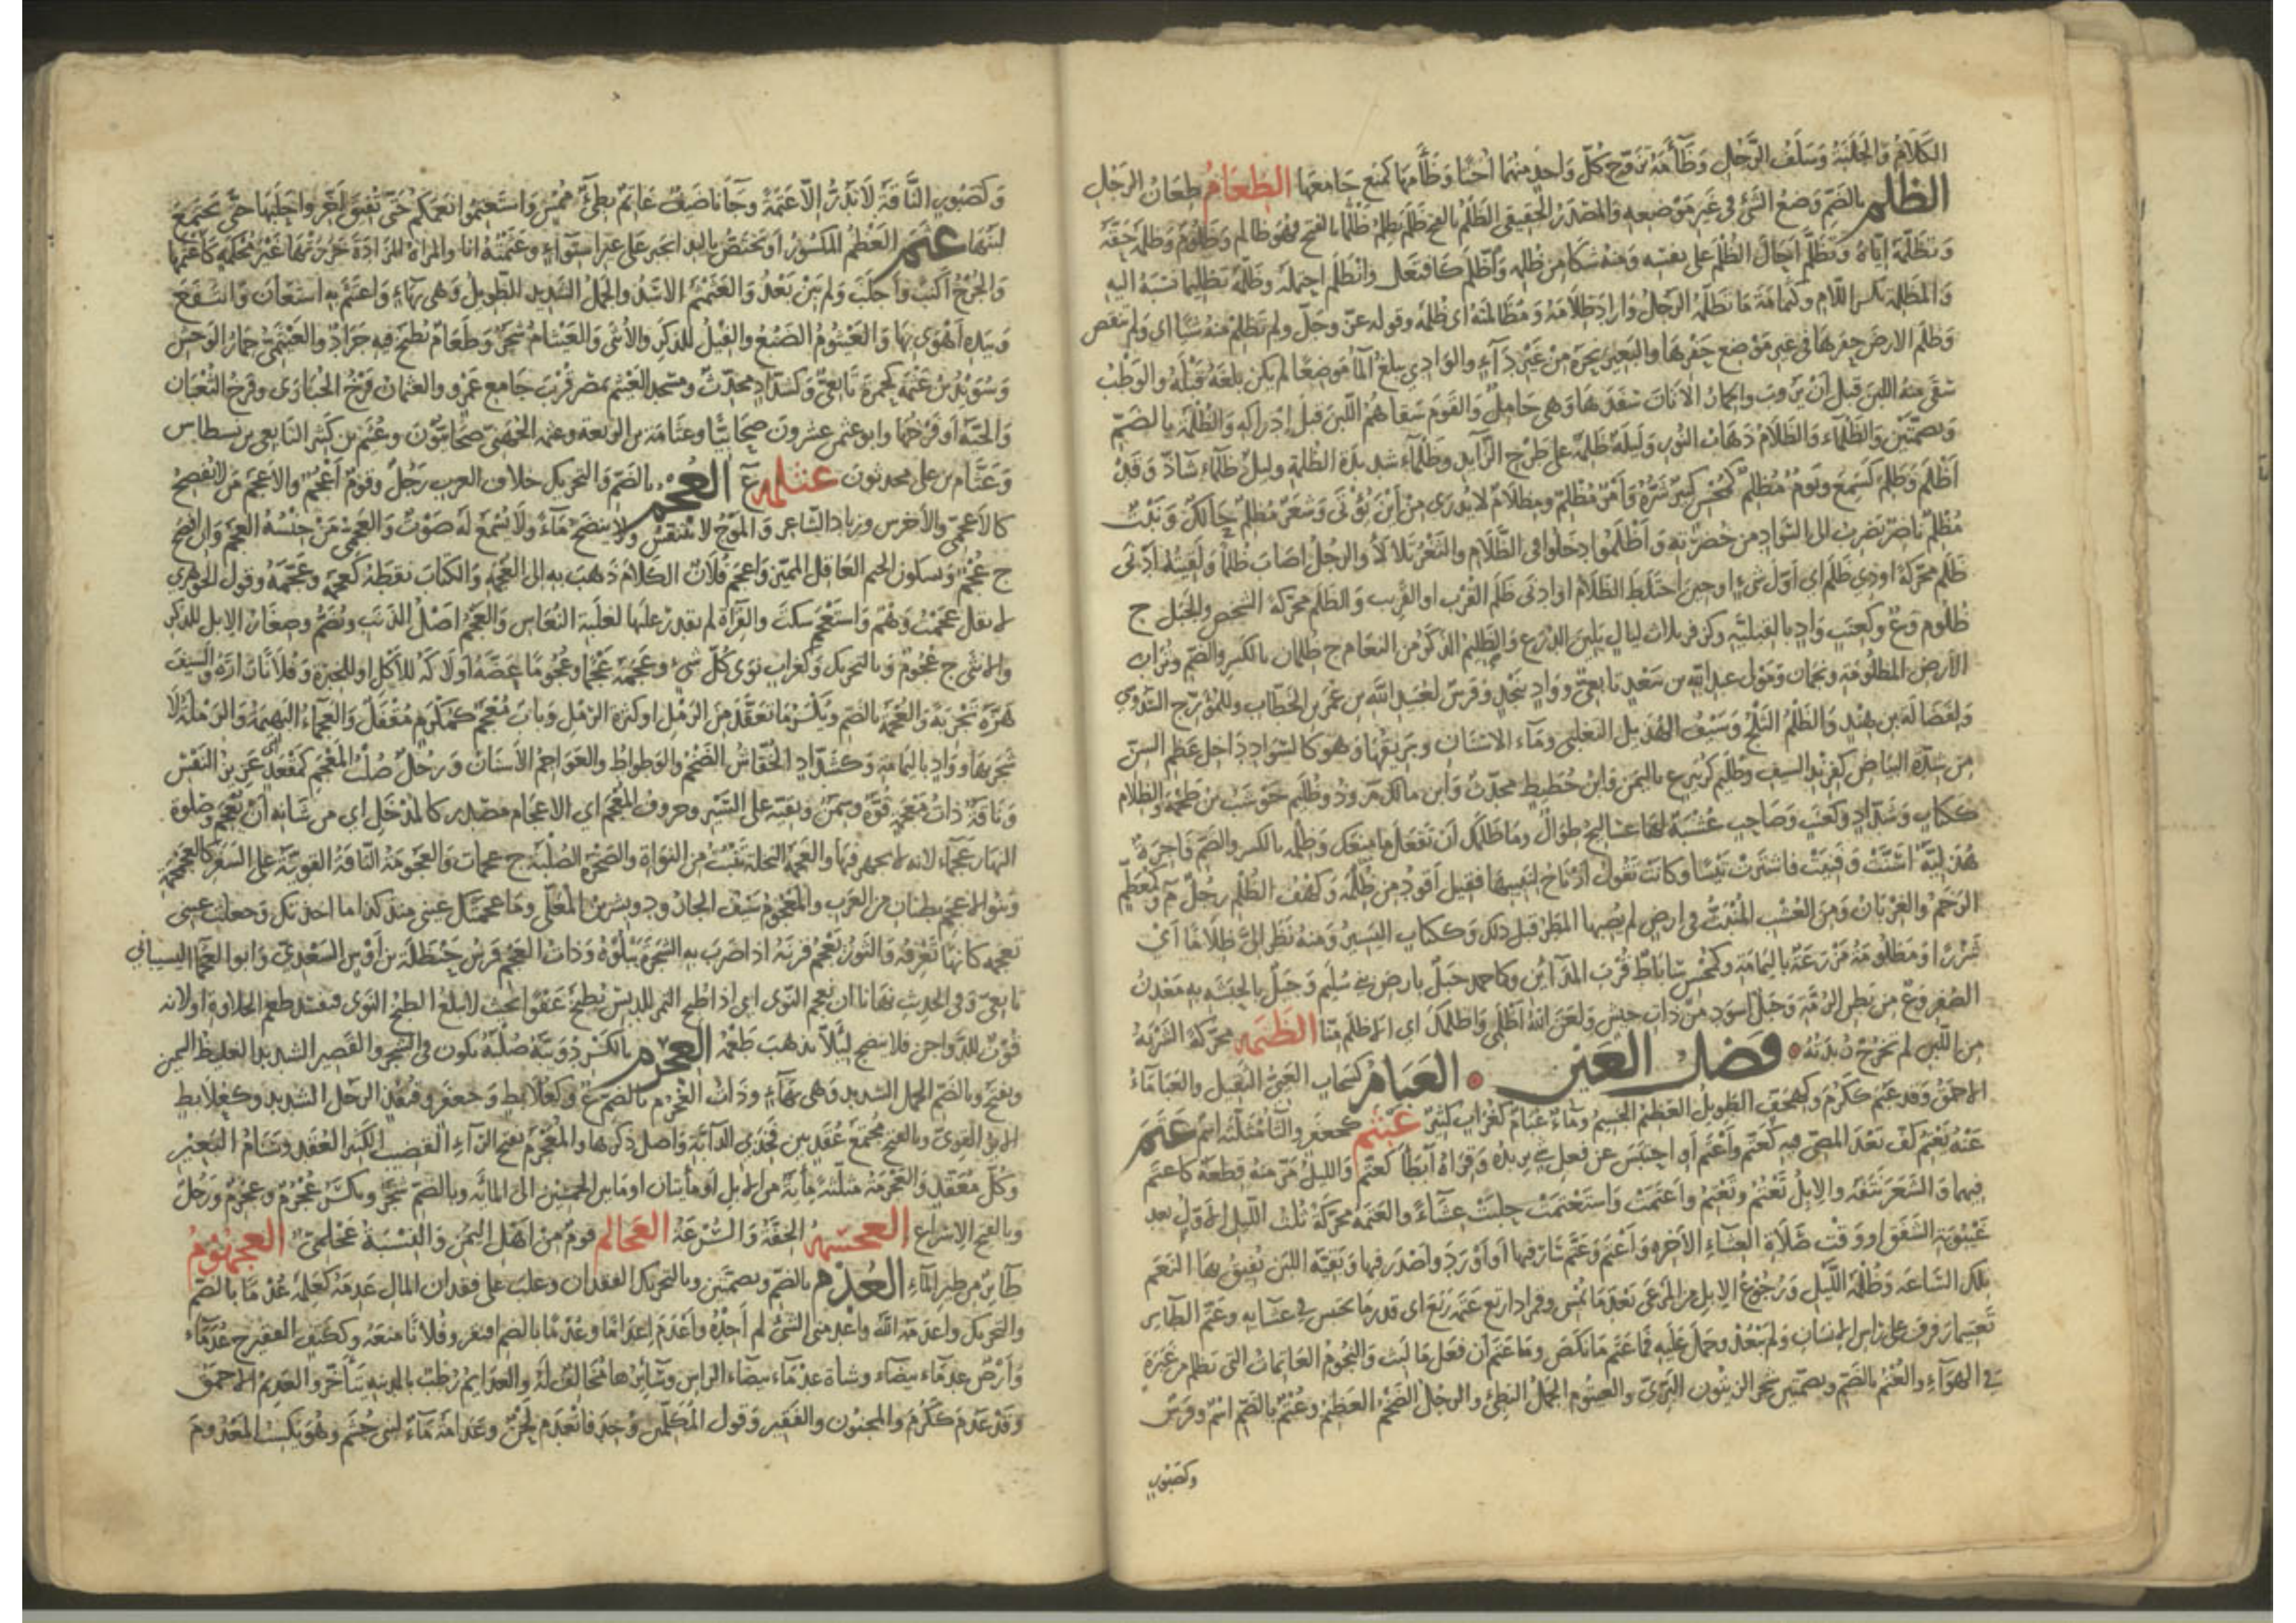 الكَلَامُ وَالجَلَبَةُ وَسِلْفُ الرَّجُلِ وَظَأَمَهُ تَزَوَّجَ كُلُّ وَاحِدٍ مِنْهُمَا أُخْتًا وَظَأَمَهَا كَمَنَعَ جَامَعَهَا الظعام ظِعَانُ الرَّحْلِ
الظلم بالضَّمِّ وَضْعُ الشَّيْءِ فِي غَيْرِ مَوْضِعِهِ وَالمَصْدَرُ الحَقِيقِيُّ الظَّلْمُ بالفتح ظَلَمَ يَظْلِمُ ظَلْمًا بالفتح فَهُوَ ظَالِم وَظَلُومٌ وَظَلَمَهُ حَقَّهُ
وَتَظَلَّمَهُ إِيَّاهُ وَتَظَلَّمَ أَحَالَ الظُّلْمَ عَلَى نَفْسِهِ وَمِنْهُ شَكَا مِن ظُلْمِهِ وَاظَّلَمَ كَافْتَعَلَ وَانْظَلَمَ احْتَمَلَهُ وَظَلَّمَهُ تَظْلِيمًا نَسَبَهُ اليه
وَالمَظْلِمَة بكسر اللام وَكَثُمَامَة مَا تَظَلَّمَهُ الرَّجُلُ وَارَادَ ظِلَامَهُ وَمُظَالَمَتَهُ اى ظُلْمَهُ وقوله عز وجل ولم تَظْلِمْ منه شيئا اى وَلم تنقص
وَظَلَمَ الارضَ حفرها في غير مَوْضِع حَفْرِهَا والبَعِيرَ نَحَرَهُ مِنْ غَيْرِ دَآءٍ والوَادِي بلغ المآء مَوْضِعًا لم يكن بلغه قَبْلَهُ وَالوَطْبَ
سَقَى منه اللبن قبل أَنْ يَرُوبَ والحِمَارُ الاتانَ سَفَدَهَا وَهِيَ حَامِلٌ وَالقَوْمَ سَقَاهُمُ اللَّبَنَ قَبْلَ إِدْرَاكِهِ وَالظُّلْمَة بالضَّمّ
وَبضمَّتَيْن وَالظَّلْمَاء وَالظَّلَامُ ذَهَابُ النُّورِ وَلَيْلَةٌ ظَلْمَةٌ على طَرْحِ الزَّآئِدِ وَظَلْمَآءُ شديدة الظلمة وليلٌ ظَلْمَآءُ شَاذٌّ وَقَدْ
أَظْلَمَ وَظَلِمَ كَسَمِعَ وَيَوْمٌ مُظْلِمٌ كَمُحْسِنٍ كَثِيرٌ شَرُّهُ وَأَمْرٌ مُظْلِمٌ وَمِظْلَامٌ لا يُدْرَى مِنْ أَيْنَ يُؤْتَى وَشَعَرٌ مُظْلِمٌ حَالِكٌ وَنَبْتٌ
مُظْلِمٌ نَاضِرٌ يَضْرِبُ الى السَّوَادِ من خُضْرَتِهِ وَأَظْلَمُوا دَخَلُوا فِي الظَّلَامِ وَالثَّغْرُ تَلَأْلَأَ وَالرَّجُلُ اصَابَ ظَلْمًا وَلَقِيتُه أَدْنَى
ظَلَمٍ مُحَرَّكَةً اوذِي ظَلَمٍ اى أَوَّلَ شيءٍ اوحين اخْتَلَطَ الظَّلَامُ اوادنى ظَلَمٍ القُرْبُ او القَرِيب وَالظَّلَم محركة الشخص والجَبَل ج
ظُلُوم وَع وَكعِنَب وَادٍ بالقبلية وكزفر ثلاث ليال يَلِينَ الدُّرَعَ وَالظَّلِيمُ الذَّكَرُ من النعام ج ظلمان بالكسر والضم وتُرَابُ
الأرضِ المَظْلُومَةِ ونجمان وَمَوْلى عبد الله بن سَعْدٍ تابعيٌّ وَوَادٍ بنَجْدٍ وفرسٌ لعَبْدِ الله بن عُمَر بن الخطَّاب وللمُؤَرِّج السَّدُوسي
وَلِفَضَالَةَ بن هِنْدٍ وَالظَّلْمُ الثَّلْجُ وَسَيْفُ الهُذَيْل التغلبي وماء الاسنان وَبَرِيقُهَا وَهُوَ كالسَّوَادِ دَاخِل عَظم السِّنّ
من شِدَّةِ البَيَاضِ كَفِرِنْدِ السيف وظُلَيْم كزُبَير ع باليمن وابن حُطَيط محدّثٌ وابن مالك م وذو ظُلَيم حَوْشَب بن طِخْمَة وَالظِلام
ككِتَاب وَشَدَّاد وكعِنَب وَصَاحِب عُشْبَةٌ لها عساليج طِوَال وما ظَلَمَكَ أَنْ تَفْعَلَ ما منعَكَ وَظِلمة بالكسر والضمّ فَاجِرَةٌ
هُذَلِيَّةٌ أَسَنَّتْ وَفَنِيَتْ فاشترت تَيْسًا وكانَتْ تقول أَرْتَاحُ لنَبِيبِهِ فقيل أَقْوَدُ من ظِلْمَة وكَهْفُ الظُّلْمِ رَجُلٌ م وكمُعَظَّم
الرَّخَمُ والغِرْبَان ومن العُشْبِ المُنْبَثُّ فِي ارضٍ لم يُصبها المطَرُ قبل ذلك وَكَكِتَابِ اليَسِيرُ وَمِنْهُ نَظَرَ إِلَيَّ ظِلَامًا أَيْ
شَزْرًا وَمَظْلُومَةُ مَزْرَعَةٌ باليَمَامَة وكمُحْسِنٍ سَابَاطٌ قُرْبَ المدآئن وكاحمد جَبَلٌ بارض بني سُلَيم وَجَبَلٌ بالحَبَشَةِ به مَعْدِنُ
الصُّفْر وَع من بَطْنِ الرُّمَّة وَجَبَلٌ اسود من ذَاتِ حبيش وَلعَنَ اللهُ أَظْلَمِي وَاظْلَمَكَ اى الاظلم منّا الظمة محرّكَة الشَّرْبَةُ
من اللَّبَن لم تَخْرُجْ زُبْدَتُهُ فصل العين العبام كَسَحَاب العَيِيُّ الثَّقِيل والعَبَامَآءُ
الاحمَق وَقَد عَبُمَ كَكَرُمَ وكهِجَفّ الطَّوِيلُ العَظِيمُ الجَسِيمُ وماءٌ عُبَامٌ كغُرَابٍ كَثِير عبثم كجعفر والثَّاءُ مُثَلَّثَة اسْم عتم
عنه يَعْتِمُ كَفَّ بَعْدَ المضيّ فيه كَعَتَّمَ وَأَعْتَمَ أو احتبس عن فعل شيءٍ يريده وَقِرَاهُ أَبْطَأَ كعَتَّمَ وَاللَّيْلُ مَرَّ مِنْهُ قطعة كاعتَم
فِيهِمَا وَالشَّعَرَ نَتَفَهُ وَالإبلُ تَعْتِمُ وتَعْتُمُ وَأَعْتَمَتْ وَاسْتَعْتَمَتْ حُلِبَتْ عِشَآءً والعَتَمَة محرّكة ثلث الليل الاول بعد
غَيْبُوبَةِ الشَّفَقِ او وَقْت صَلَاة العِشَاءِ الآخِرَة وَأَعْتَمَ وَعَتَّمَ سَارَ فيها أو أَوْرَدَ وَأَصْدَرَ فيها وَبَقِيَّة اللبن تُفِيقُ بها النعم
بتلك السَّاعَة وَظُلْمَة اللَّيْلِ وَرُجُوعُ الإبِلِ من المَرْعَى بَعْدَ مَا تُمْسي وقمراء اربع عَتَمَة رُبَع اى قدر ما يحتبس في عَشَآئِهِ وَعَتَّمَ الطَّائِر
تَعْتِيمًا رَفْرَفَ على رَاسِ الإنسان ولم يَبْعُدْ وحَمَلَ عَلَيْهِ فَمَا عَتَّمَ مَا نَكَصَ وما عَتَّمَ أن فعل مَا لَبِثَ وَالنُّجُومُ العَاتِمَات التي تظلم من غَبَرَةٍ
فِي الهَوَآءِ وَالعُتُم بالضَّمّ وبضمتين شجر الزيتون البَرِّيّ والعيثوم الجَمَلُ البَطِيءُ والرجُل الضَّخْم العَظِيم وعُتْم بالضَّمّ اسْم وفرَسٌ
وكصبور
وَكَصَبُورٍ النَّاقَة لا تَدُرُّ إِلَّا عَتَمَةً وَجَآءَنا ضَيْفٌ عَاتِمٌ بطِيءٌ مُمْسٍ وَاستعتِمُوا نَعَمَكُمْ حَتَّى تُفِيقَ أَخِّرُوا حَلْبَهَا حَتَّى يَجْتَمِعَ
لَبَنُهَا عثم العَظْمُ المكسُورُ أو يختصُّ باليد انْجَبَرَ على غير استوآءٍ وعَثَمْتُهُ انا والمَرْأَة المَزَادَةَ خَرَزَتْهَا غَيْرَ مُحْكَمَةٍ كَاعْتَثَمَتْهَا
وَالجُرْحُ أَكْنَبَ وَأَجْلَبَ وَلَمْ يَبْرَأْ بَعْدُ وَالعَثَمْثَمُ الاسَدُ وَالجَمَلُ الشَّدِيدُ الطَّوِيلُ وَهِي بهَآءٍ وَاعْتَثَم به اسْتَعَانَ وَانتفَعَ
وبِيَدِهِ أَهْوَى بها وَالعَيْثُومُ الضَّبُعُ وَالفِيلُ للذكَر وَالأُنْثَى وَالعَيْثَام شَجَرٌ وَطَعَامٌ يُطْبَخ فيه جَرَادٌ والعَيْثَمِيُّ حِمَارُ الوَحْشِ
وَسُوَيْدُ بْنُ عَثْمَةَ كحمزة تَابِعِيٌّ وَكَشَدَّادٍ محدِّثٌ ومسجد العَيْثَم بمصر قُرْبَ جَامِع عَمْرٍو والعُثْمَان فَرْخُ الحُبَارَى وفرخُ الثُّعْبَان
وَالحَيَّة أو فَرْخُهَا وابو عثمان عشرون صحابيًّا وعَثَّامَة بن الوَلعه وعثمه الجُهَنِيّ صَحَابِيُّونَ وعُثَيْم بن كثير التابعي بن بسطاس
وَعَثَّام بن علي محدثون عثلمة ع العجم بالضَّمّ وَالتحريك خِلَاف العرب رَجُلٌ وقومٌ أَعْجَمُ والأعْجَمُ مَن لا يُفْصِحُ
كالأعجمي والأخرَس وزياد الشَّاعِر وَالمَوْج لا يَتَنَفَّسُ ولا ينضح مَآءً ولا يُسْمَعُ لَهُ صَوْتٌ وَالعَجَمِيُّ مَنْ جِنْسُهُ العجم وان افصح
ج عُجْمٌ وَبسكون الجيم العَاقل المميّز وَاعجَمَ فُلَانٌ الكَلَامَ ذَهَبَ بِه الى العُجْمَة وَالكتاب نَقَطَهُ كعجمَه وعَجَّمَهُ وقول الجوهري
لا تقل عَجَمْتُ وَهَمٌ وَاستَعْجَمَ سكَتَ والقِرَآءَة لم يقدر عليها لغلبة النُّعَاس وَالعَجْمُ اصْلُ الذنب ويُضَمُّ وَصِغَارُ الإبل للذكر
والانثى ج عُجُوم وَبالتحريك وَكغُرَابٍ نَوَى كُلِّ شيءٍ وعجمه عَجْمًا وعُجُومًا عَضَّهُ أَو لَاكَهُ للأكل او للخبرة وَفُلَانًا رَازَهُ وَالسيفَ
هَزَّهُ تَجْرِبَة وَالعجمة بالضم وَبِكسْر مَا تَعَقَّدَ من الرَّمْلِ او كثرة الرمل وَبَابٌ مُعْجَمٌ كمُكْرَمٍ مُقْفَلٌ وَالعَجْمَآءُ البَهِيمَة والرَّمْلة لا
شجَر بهَا وَوَادٍ باليمامة وكشَدَّادٍ الخُفَّاشُ الضَّخْمُ والوَطْوَاطُ والعَوَاجِمُ الأسنَان وَرَجُلٌ صُلْبُ المَعْجَمِ كمقعَد عَزِيزُ النَّفْس
وَنَاقَةٌ ذَاتُ مَعْجَمَةٍ قُوَّةٍ وَسِمَنٍ وبقية على السَّيْرِ وحروف المُعْجَم اي الاعجام مصدر كالمُدْخَل اي من شَانِهِ أَنْ يُعْجَم وَصلوة
النهار عَجْمَآءُ لانه لا يجهر فيها والعَجَمَة النخلة تَنْبُتُ من النَّوَاة والصَّخْرَةُ الصُّلْبَة ج عجمات والعَجُومَة النَّاقَة القَوِيَّة على السَّفَر كالعجمجمة
وبنوالاعجم بطنان من العَرَب والمعجوم سيف الجان ود وبشر بن المُعَلَّى ومَا عَجَمَتْكَ عيني منذ كذا ما اخذتك وَجعَلت عيني
تعجمه كَانهَا تَعْرِفُه وَالثَّوْرُ يَعْجُم قرنه اذا ضَرَبَ به الشجَرَةَ يَبْلُوهُ وَذَاتُ العَجْم فَرَسُ حَنْظَلَة بن أَوْسٍ السَّعْدِيِّ وَابو العجما
تابعيّ وَفي الحديث نَهَانَا ان نَعْجُم النَّوَى اي اذا طُبِخ التمر للدِّبْسِ يُطْبَخُ عَفْوًا بحيث لا يبلغ الطبخ النَّوَى فيفسد طعم الحلاوة او لانه
قُوتٌ للدَّوَاجِن فلا يُنْضَجُ لِئَلَّا يذهب طَعْمُه العجرم بالكَسْر دُوَيْبَّةٌ صُلْبَةٌ تكون في الشجر والقَصِير الشديد الغليظ السمين
ويفتح وبالضَّم الجمل الشديد وَهي بهَآءٍ وَذَات العُجْرُم بالضم ع وكعُلَابِط وَجعفَر وقنفُذٍ الرجل الشديد وكعُلَابِطٍ
القَوِيّ وبالفتح مُجْتَمَعُ عُقَدٍ بين فَخِذَي الدآبَّة وَاصْلُ ذكرها والمُعَجْرَمُ بفتح الرآءِ القَضِيبُ الكَثِيرُ العُقَد وَسَنَامُ البَعِيرِ
وكلّ مُعَقَّدٍ وَالعجرمة مثلّثة مِائَة من الإبلِ أَو مِائَتَانِ اوما بين الخمسين الى المائة وبالضم شَجَرٌ ويكسر عُجْرُم وعِجْرِمٌ وَرَجُلٌ
وَبالفتح الإسراع العجسمة الخِفَّةُ وَالسُّرْعَةُ العجالم قومٌ مِنْ أَهْلِ اليَمَنِ وَالنِّسْبَةُ عَجْلَمِيّ العجهوم
طَآئِرٌ من طير المآءِ العدم بالضَّمّ وبضمّتين وبالتحريك الفِقْدَانُ وغلب على فقدان المال عَدِمَهُ كعَلِمَهُ عُدْمًا بالضم
والتحريك واعدَمَهُ اللهُ واعدمني الشيْءُ لم أَجِدْهُ وأَعْدَمَ إعدَامًا وعُدْمًا بالضم افتقر وفلانًا منعَهُ وكَكتِف الفقير ج عُدَمَاء
وَأَرْضٌ عَدْمَآء بيضآء وشاة عَدْمَآءُ بيضآء الراس وَسَآئِرُهَا مُخَالِفٌ لَهُ والعدائم رُطَبٌ بالمدينة يَتَأَخَّر والعَدِيمُ الاحمقُ
وَقَدْ عَدُم كَكَرُمَ والمجنون والفقير وقول المتكلّمين وُجِدَ فانْعَدَم لَحْنٌ وعَدَامَةُ مَآءٌ لبني جُشَم وهُوَ يَكْسِبُ المَعْدُومَ